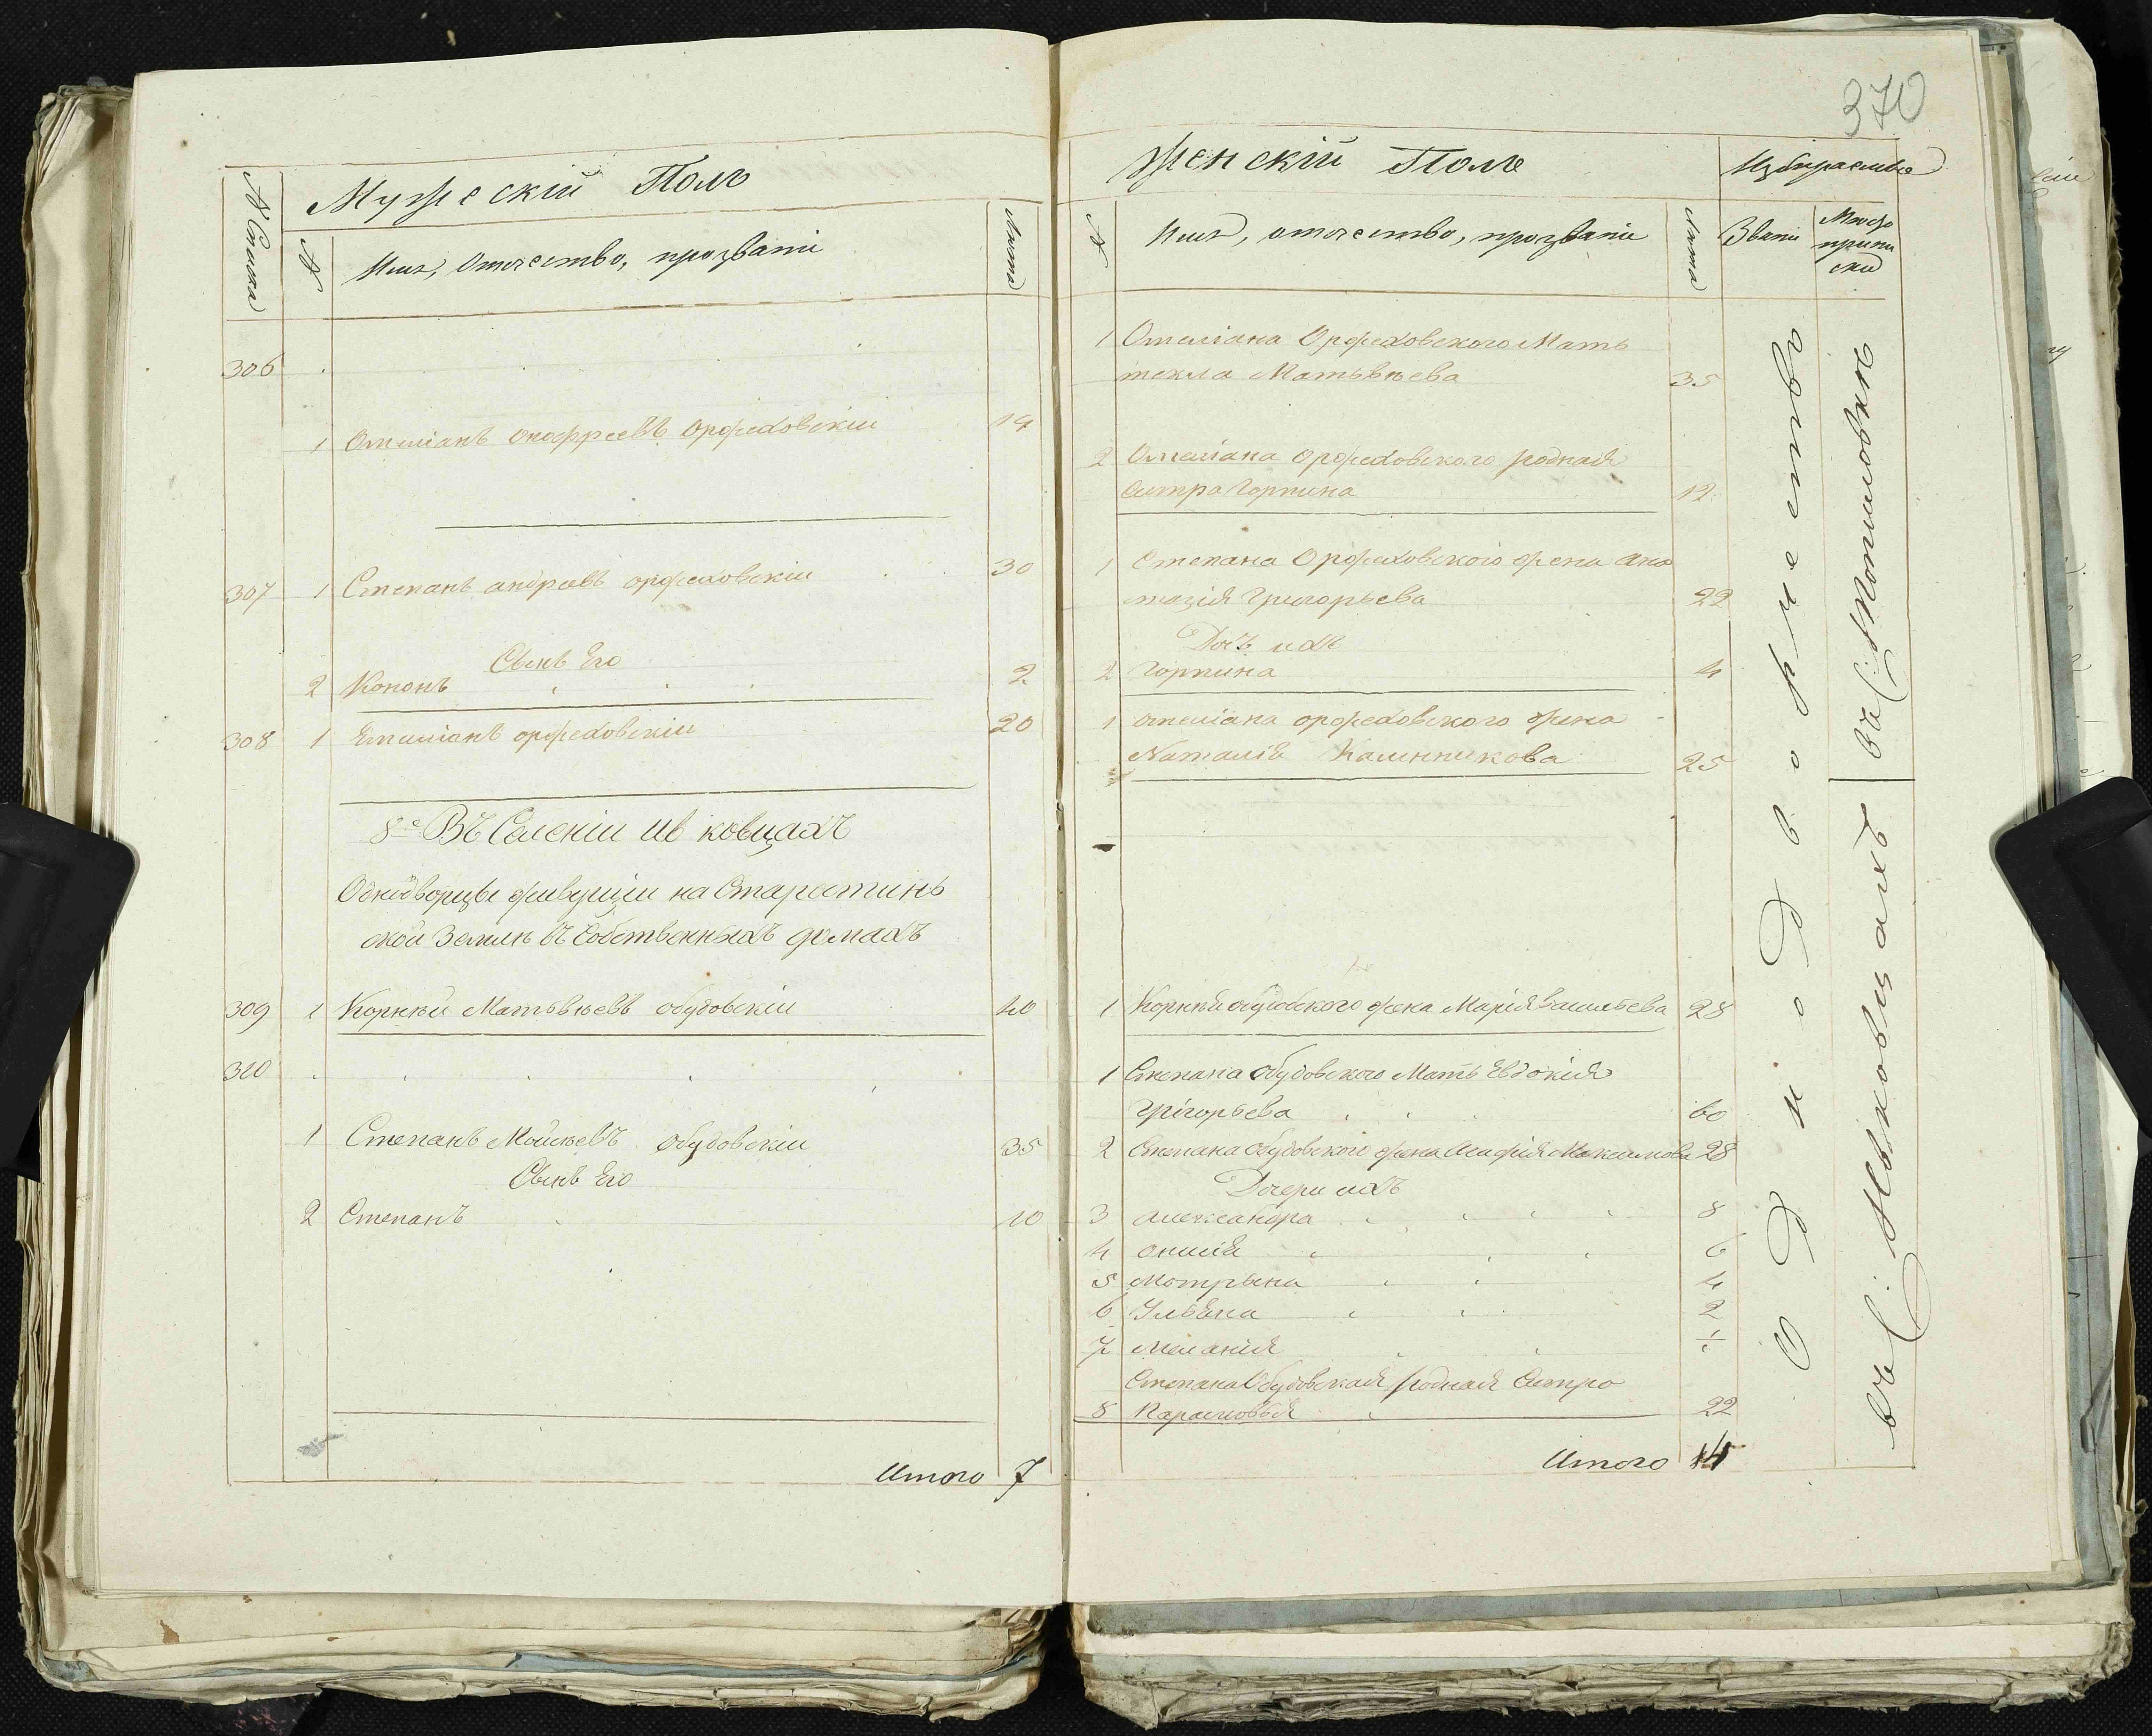 370
Мужескій Полъ
№ Списка
№
Имя, Отчество, прозваніи
Лѣта
306
1 Омиліянъ онофріевъ Оржеховскіи 19
307 1 Степанъ андріевъ оржеховскіи 30
Сынъ Его
2 Кононъ 2
308 1 Емиліянъ оржеховскіи 20
8е Въ Селеніи Ив ковцахъ
Однодворцы живущіи на Старостинь
ской Землѣ въ Собственныхъ домахъ
309 1 Корнѣй Матьвѣевъ обудовскіи 40
310
1 Степанъ Мойсѣевъ обудовскіи 35
Сынъ Его
2 Степанъ 10
Итого 7
Женскій Полъ
№
Имя, отчество, прозваніи
Лѣта
Избираемые
Званіи
Мѣсто
припи
ски
1 Омиліана Оржеховского Мать
текла Матьвѣева 35
2 Омеліана оржеховского родная
систра Горпина 12
1 Степана Оржеховского жена Ана
тазія Григорьева 22
Дочъ ихъ
2 Горпина 4
1 омеліана оржеховского жена
Наталія Калинникова 25
1 Корнѣя обудовского жена Марія васильева 28
1 Степана обудовского Мать Евдокія
Грігорьева 60
2 Степана обудовского жена Агафія Максимова 28
Дочери ихъ
3 александра 8
4 онилія 6
5 Мотрына 4
6 Ульяна 2
7 Меланія ½
Степана Обудовская родная Систро
8 Парасковья 22
Итого 14
Однодворчество
въ с: Потиловкѣ
въ с: Ивковцахъ